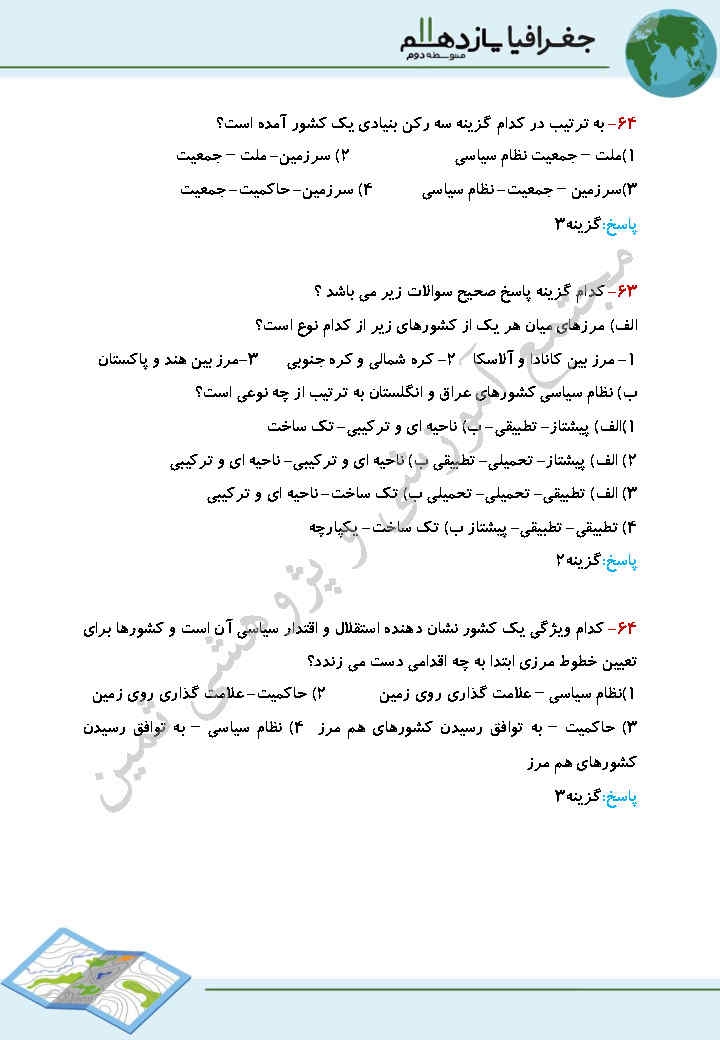 جغرافیا یازدهم
متوسطه دوم
۶۴- به ترتیب در کدام گزینه سه رکن بنیادی یک کشور آمده است؟
۱)ملت – جمعیت نظام سیاسی ۲) سرزمین- ملت – جمعیت
۳)سرزمین – جمعیت- نظام سیاسی ۴) سرزمین- حاکمیت- جمعیت
پاسخ:گزینه۳
۶۳- کدام گزینه پاسخ صحیح سوالات زیر می باشد ؟
الف) مرزهای میان هر یک از کشورهای زیر از کدام نوع است؟
۱- مرز بین کانادا و آلاسکا ۲- کره شمالی و کره جنوبی ۳-مرز بین هند و پاکستان
ب) نظام سیاسی کشورهای عراق و انگلستان به ترتیب از چه نوعی است؟
۱)الف) پیشتاز- تطبیقی- ب) ناحیه ای و ترکیبی- تک ساخت
۲) الف) پیشتاز- تحمیلی- تطبیقی ب) ناحیه ای و ترکیبی- ناحیه ای و ترکیبی
۳) الف) تطبیقی- تحمیلی- تحمیلی ب) تک ساخت- ناحیه ای و ترکیبی
۴) تطبیقی- تطبیقی- پیشتاز ب) تک ساخت- یکپارچه
پاسخ:گزینه۲
۶۴- کدام ویژگی یک کشور نشان دهنده استقلال و اقتدار سیاسی آن است و کشورها برای
تعیین خطوط مرزی ابتدا به چه اقدامی دست می زندد؟
۱)نظام سیاسی – علامت گذاری روی زمین ۲) حاکمیت- علامت گذاری روی زمین
۳) حاکمیت – به توافق رسیدن کشورهای هم مرز ۴) نظام سیاسی – به توافق رسیدن
کشورهای هم مرز
پاسخ:گزینه۳
مجتمع آموزشی و پژوهشی ثمین